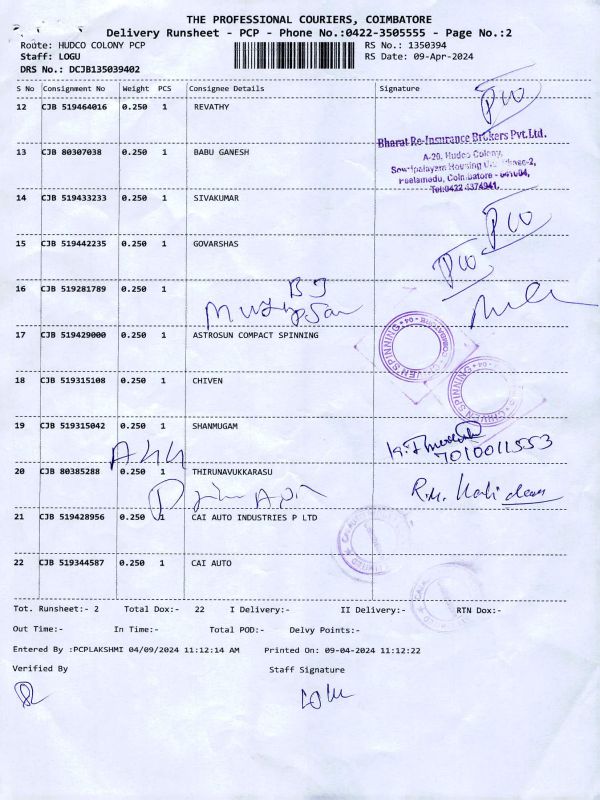 THE PROFESSIONAL COURIERS, COIMBATORE
Delivery Runsheet - PCP - Phone No.:0422-3505555 - Page No.:2
Route: HUDCO COLONY PCP RS No.: 1350394
Staff: LOGU RS Date: 09-Apr-2024
DRS No.: DCJB135039402
S No Consignment No Weight PCS Consignee Details Signature
12 CJB 519464016 0.250 1 REVATHY
Bharat Re-Insurance Brokers Pvt.Ltd.
13 CJB 80307038 0.250 1 BABU GANESH
A-20, Hudco Colony,
Peelamedu, Coimbatore - 641004,
Tel:0422 4374941,
14 CJB 519433233 0.250 1 SIVAKUMAR
15 CJB 519442235 0.250 1 GOVARSHAS
16 CJB 519281789 0.250 1
17 CJB 519429000 0.250 1 ASTROSUN COMPACT SPINNING
18 CJB 519315108 0.250 1 CHIVEN
CHIVEN SPINNING
19 CJB 519315042 0.250 1 SHANMUGAM
7010011553
20 CJB 80385288 0.250 1 THIRUNAVUKKARASU
21 CJB 519428956 0.250 1 CAI AUTO INDUSTRIES P LTD
22 CJB 519344587 0.250 1 CAI AUTO
Tot. Runsheet:- 2 Total Dox:- 22 I Delivery:- II Delivery:- RTN Dox:-
Out Time:- In Time:- Total POD:- Delvy Points:-
Entered By :PCPLAKSHMI 04/09/2024 11:12:14 AM Printed On: 09-04-2024 11:12:22
Verified By Staff Signature